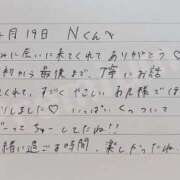 月19日 Nくんへ
みに会いに来てくれてありがとう♡
初から最後まで、丁寧にお話
てくれて、すごくやさしいお兄様でほ
りしました♡いっぱいくっついて
ぎーってちゅーしてたね!!
緒に過ごす時間、楽しかったね